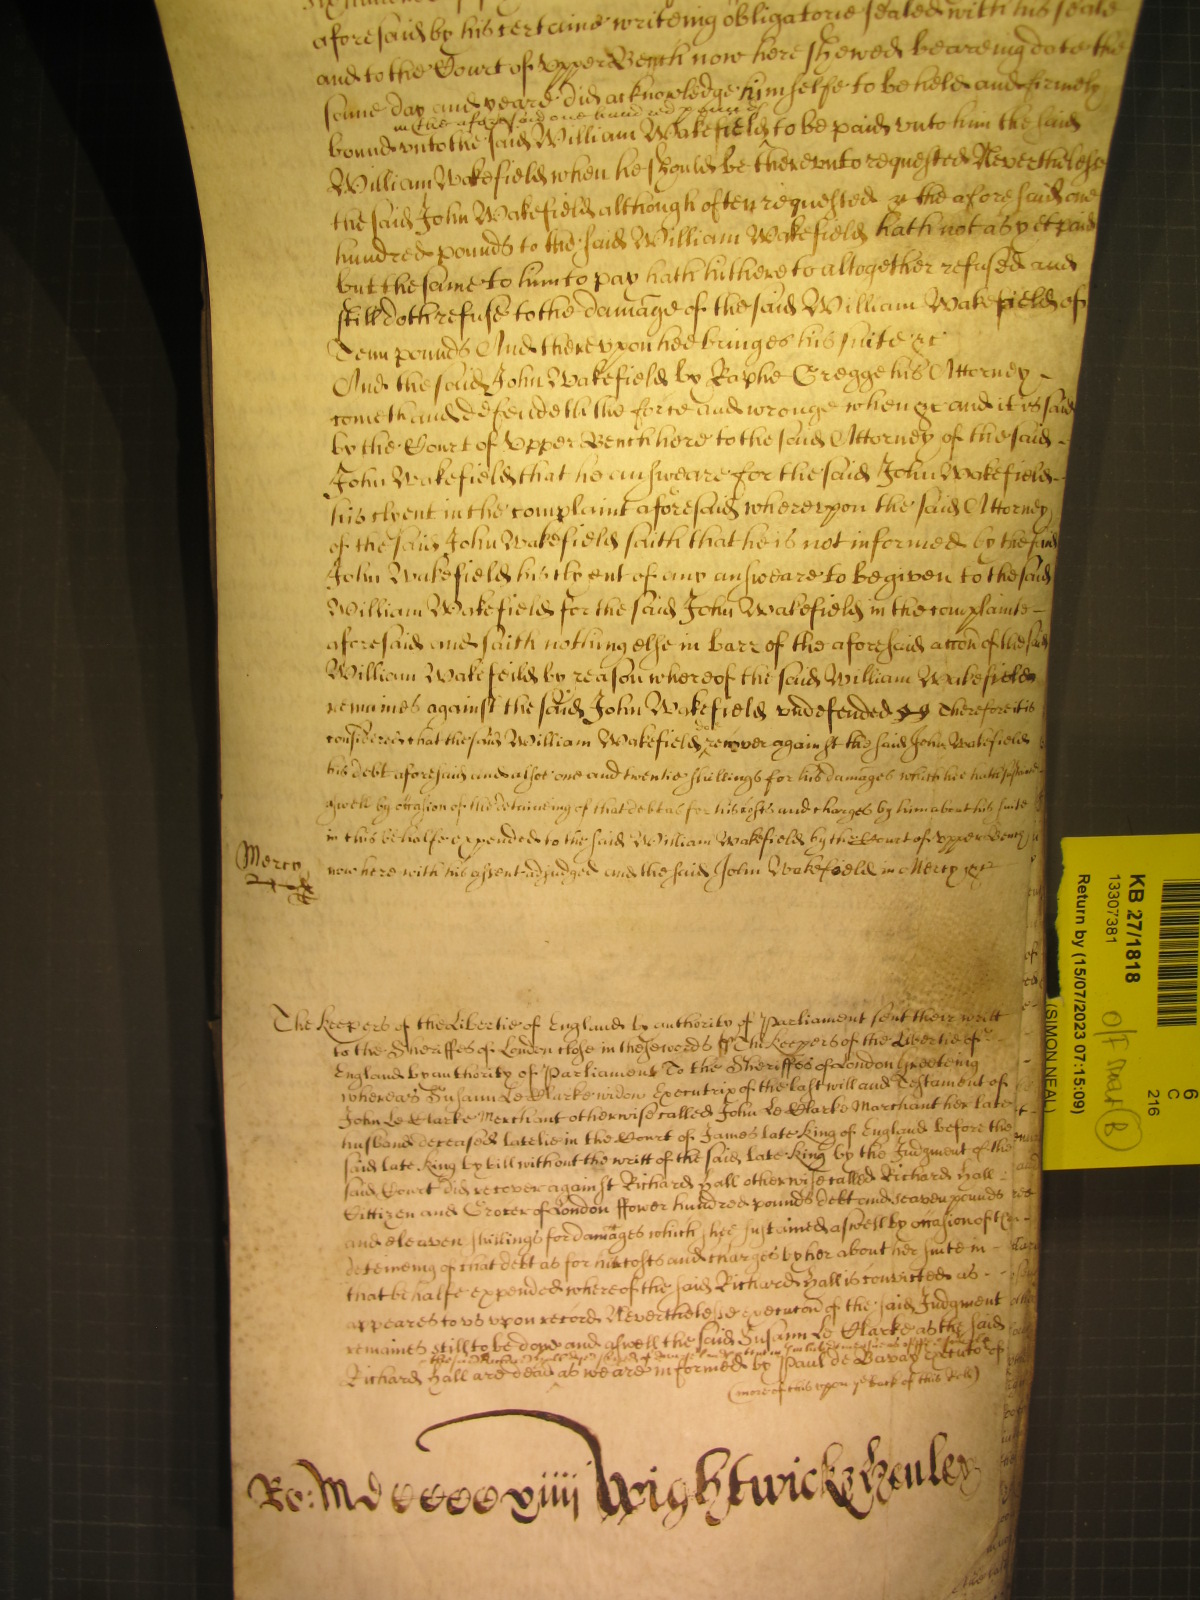 aforesaid by his certaine writeing obligatorie sealed with his seale
and to the Court of Upper Bench now here shewed beareing date the
same day and yeare did acknowledge himselfe to be held and firmely
in the aforesaid one hundred pounds
bound vnto the said William Wakefield to be paid vnto him the said
William Wakefield when he should be therevnto requested Neverthelesse
the said John Wakefield although often requested the aforesaid one
hundred pounds to the said William Wakefield hath not as yet paid
but the same to him to pay hath hithereto altogether refused and
still doth refuse to the damage of the said William Wakefield of
Tenn pounds And therevpon hee bringes his suite &c
And the said John Wakefield by Raphe Gregge his Attorney
cometh and defendeth the force and wronge when &c and it is said
by the Court of Vpper Bench here to the said Attorney of the said
John Wakefield that he answeare for the said John Wakefield
his clyent in the complaint aforesaid wherevpon the said Attorney
of the said John Wakefield saith that he is not informed by the said
John Wakefield his clyent of any answeare to be given to the said
William Wakefield for the said John Wakefield in the complainte
aforesaid and saith nothing else in barr of the aforesaid accon of the said
William Wakefeild by reason whereof the said William Wakefield
remaines against the said John Wakefield vndefended Therefore it is
considered that the said William Wakefield recover against the said John Wakefield
his debt aforesaid and alsoe one and twentie shillings for his damages which hee hath sustained
aswell by occasion of the deteineing of that debt as for his costs and charges by him about his suite
in this behalfe expended to the said William Wakefield by the Court of Vpper Bench
Mercy
now here with his assent adjudged and the said John Wakefield in Mercy &c
The Keepers of the Libertie of England by authority of Parliament sent their writt
to the Sheriffes of London close in these words ss The Keepers of the Libertie of
England by authority of Parliament To the Sheriffes of London Greeteing
whereas Susann Le Clarke widow Executrix of the last will and Testament of
John Le Clarke Merchant otherwise called John Le Clarke Marchant her late
husband deceased latelie in the Court of James late King of England before the
said late King by bill without the writt of the said late King by the Judgment of the
said Court did recover against Richard Hall otherwise called Richard Hall
Cittizen and Grocer of London ffower hundred pounds debt and seaven pounds
and eleaven shillings for damages which shee sustained aswell by occasion of the
deteineing of that debt as for her costs and charges by her about her suite in
that behalfe expended whereof the said Richard Hall is convicted as
appeares to vs vpon record Neverthelesse execucon of the said Judgment
remaines still to be done and aswell the said Susann Le Clarke as the said
Richard Hall are dead as we are informed by Paul de Bavay executor of
(more of this vpon ye back of this Roll)
Ro: Md CCCC xviiij Wightwick & Henley
KB 27/1818
13307381
Return by (15/07/2023 07:15:09)
(SIMON NEAL)
6
C
216